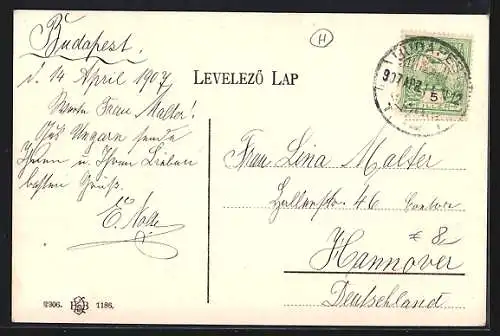 Budapest.
d. 14 April 1907
H
LEVELEZŐ LAP
BUDAPEST
907 APR
5
Werte Frau Malter!
Aus Ungarn sende
Ihnen u. Ihren Lieben
besten Gruß.
E. Nolte
Frau Lina Malter
46
Hannover
Deutschland
2306. 1186.